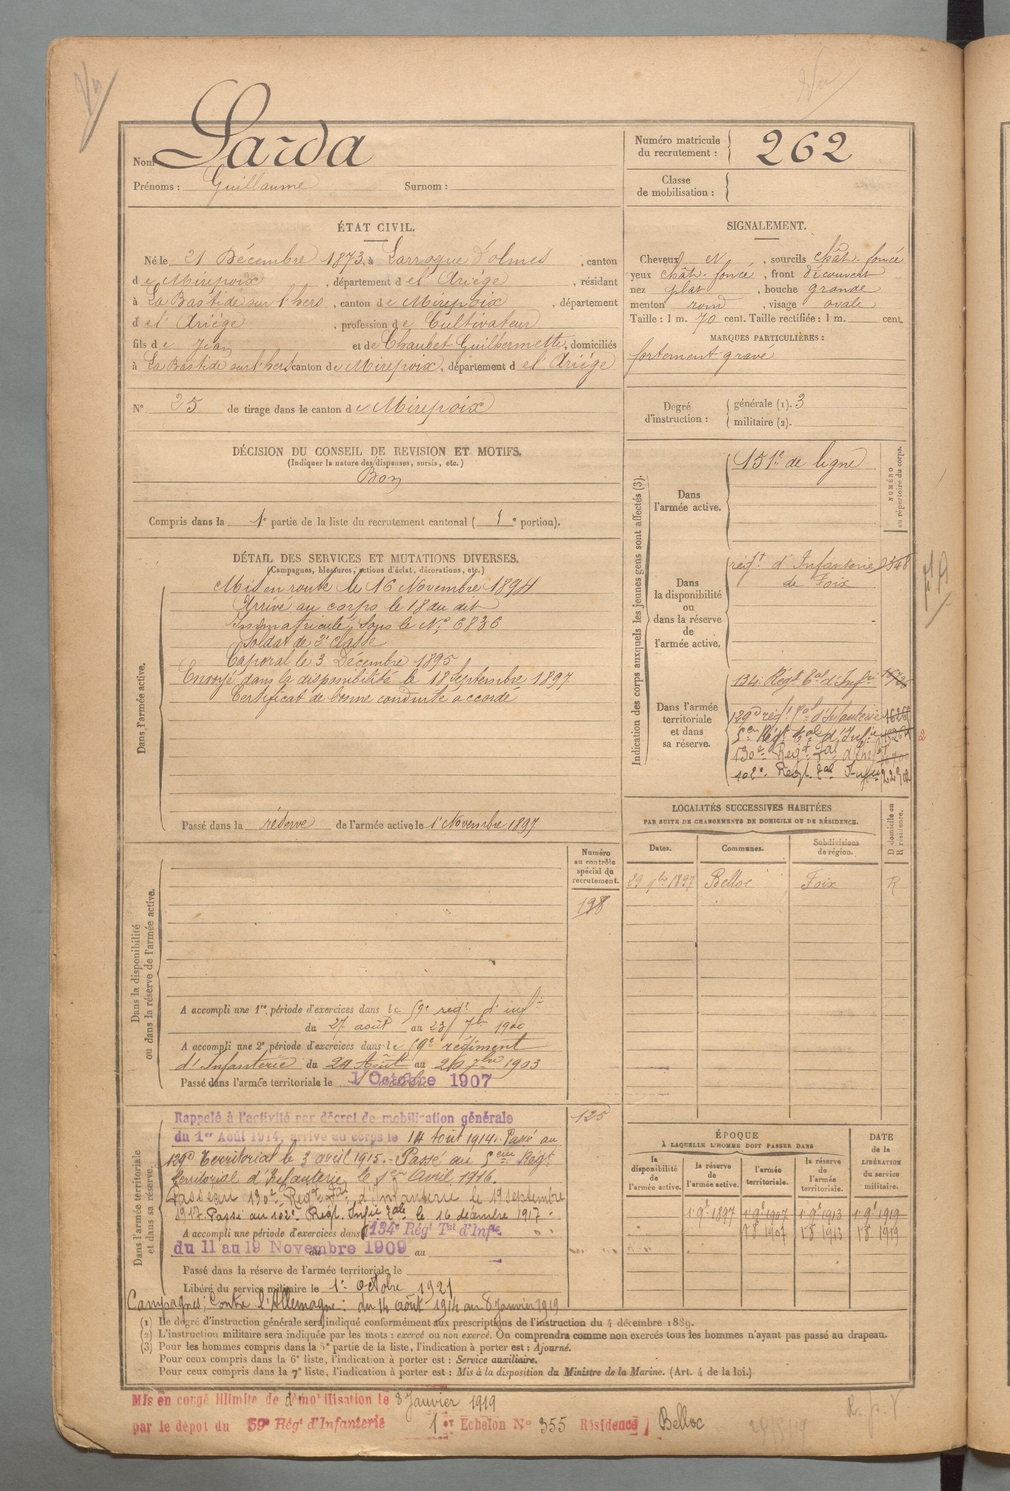 Nom Sarda
Prénoms : Guillaume Surnom :
Numéro matricule
du recrutement : 262
Classe
de mobilisation :
ÉTAT CIVIL.
Né le 21 Décembre 1873, à Larroque d'olmes, canton
de Mirepoix, département de l'Ariège, résidant
à La Bastide sur l'hers, canton de Mirepoix, département
de l'Ariège, profession de Cultivateur
fils de Jean et de Chaubet Guilhermette, domiciliés
à La Bastide sur l'hers canton de Mirepoix, département de l'Ariège
N° 25 de tirage dans le canton de Mirepoix
SIGNALEMENT.
Cheveux N, sourcils chât. foncé
yeux chât. foncé, front découvert
nez plat, bouche grande
menton rond, visage ovale
Taille : 1 m. 70 cent. Taille rectifiée : 1 m. cent.
MARQUES PARTICULIÈRES :
fortement gravé
Degré
d'instruction :
générale (1). 3
militaire (2).
DÉCISION DU CONSEIL DE REVISION ET MOTIFS.
(Indiquer la nature des dispenses, sursis, etc.)
Bon
Compris dans la 1e partie de la liste du recrutement cantonal (1e portion).
DÉTAIL DES SERVICES ET MUTATIONS DIVERSES.
(Campagnes, blessures, actions d'éclat, décorations, etc.)
Dans l'armée active.
Mis en route le 16 Novembre 1894
Arrivé au corps le 18 du dit
Immatriculé sous le N° 6836
Soldat de 2e classe
Caporal le 3 Décembre 1895
Envoyé dans la disponibilité le 18 Septembre 1897
Certificat de bonne conduite accordé
Passé dans la réserve de l'armée active le 1er Novembre 1897
Indication des corps auxquels les jeunes gens sont affectés (3).
NUMÉRO
au répertoire du corps.
Dans
l'armée active.
151e de ligne
Dans
la disponibilité
ou
dans la réserve
de
l'armée active.
régt d'Infanterie 2548
de Foix
Dans l'armée
territoriale
et dans
sa réserve.
134 Régt Tal d'Infie
129e régt Tal d'Infanterie
5e Régt Tal d'Infie
130e Regt Tal d'Inf
102e Regt Tal Infie
LOCALITÉS SUCCESSIVES HABITÉES
PAR SUITE DE CHANGEMENTS DE DOMICILE OU DE RÉSIDENCE.
D domicile ou
R résidence.
Dates. Communes. Subdivisions
de région.
29 9bre 1897 Belloc Foix R
Numéro
au contrôle
spécial du
recrutement.
198
Dans la disponibilité
ou dans la réserve de l'armée active.
A accompli une 1re période d'exercices dans le 59e régt d'infie
du 27 août au 23 7bre 1900
A accompli une 2e période d'exercices dans le 59e régiment
d'Infanterie du 24 Août au 20 7bre 1903
Passé dans l'armée territoriale le 1 Octobre 1907
Dans l'armée territoriale
et dans sa réserve.
125
Rappelé à l'activité par décret de mobilisation générale
du 1er Août 1914, arrivé au corps le 14 Août 1914. Passé au
129e Territorial le 3 avril 1915. Passé au 5eme Régt
Territorial d'Infanterie le 1er Avril 1916.
Passé au 130e Regt Tal d'Infanterie le 19 septembre
1917. Passé au 102e Regt. Infie Tale le 16 décembre 1917
A accompli une période d'exercices dans 134e Régt Tal d'Infie
du 11 au 19 Novembre 1909 au
Passé dans la réserve de l'armée territoriale le
Libéré du service militaire le 1er octobre 1921
Campagnes : Contre l'Allemagne : du 14 août 1914 au 8 janvier 1919
ÉPOQUE
À LAQUELLE L'HOMME DOIT PASSER DANS
DATE
de la
LIBÉRATION
du service
militaire.
la
disponibilité
de
l'armée active.
la réserve
de
l'armée active.
l'armée
territoriale.
la réserve
de
l'armée
territoriale.
1 9e 1897 1 9e 1907 1 9e 1913 1 9e 1919
1 8 1907 1 8 1913 1 8 1919
(1) Le degré d'instruction générale sera indiqué conformément aux prescriptions de l'instruction du 4 décembre 1889.
(2) L'instruction militaire sera indiquée par les mots : exercé ou non exercé. On comprendra comme non exercés tous les hommes n'ayant pas passé au drapeau.
(3) Pour les hommes compris dans la 5e partie de la liste, l'indication à porter est : Ajourné.
Pour ceux compris dans la 6e liste, l'indication à porter est : Service auxiliaire.
Pour ceux compris dans la 7e liste, l'indication à porter est : Mis à la disposition du Ministre de la Marine. (Art. 4 de la loi.)
Mis en congé illimité de démobilisation le 8 Janvier 1919
par le dépôt du 59e Régt d'Infanterie 1er Échelon N° 355 Résidence Belloc